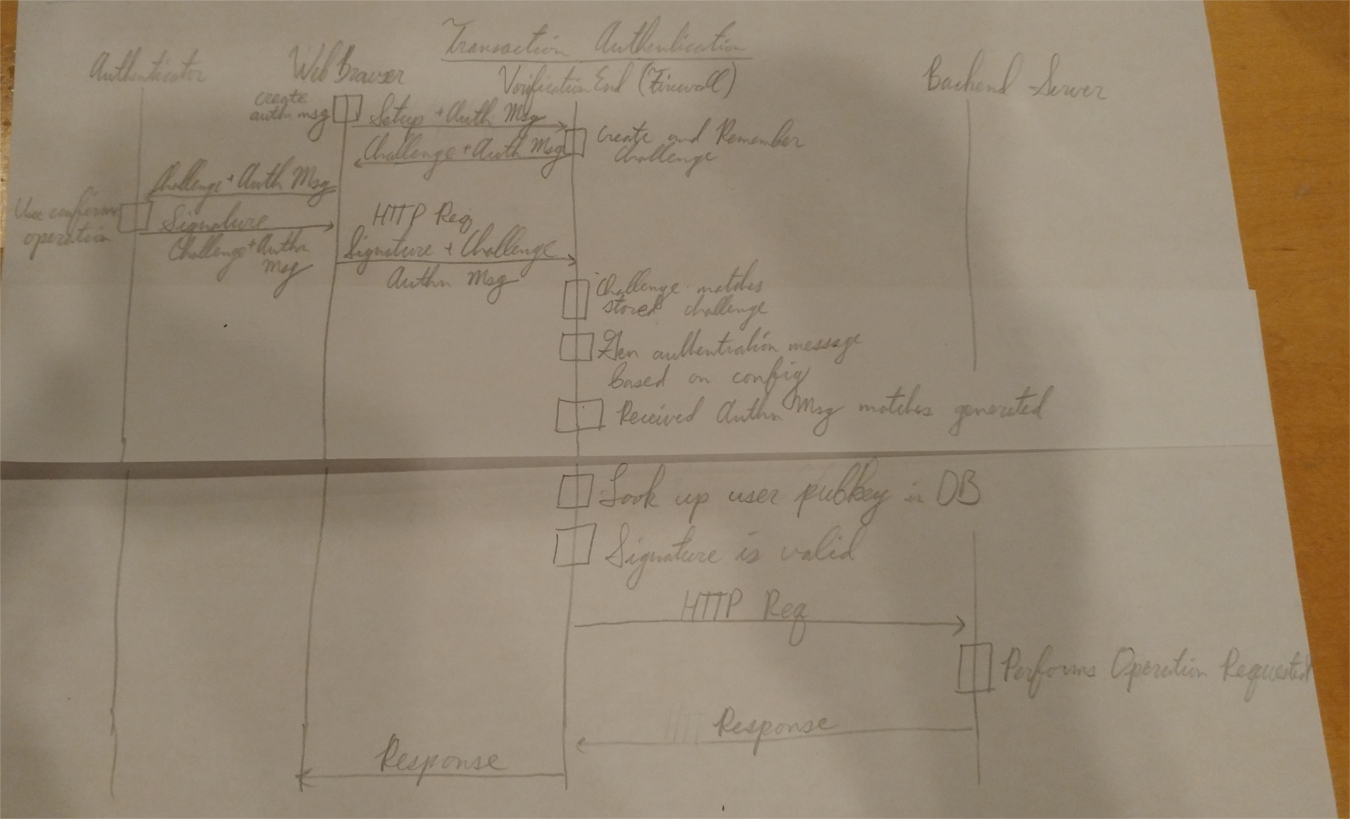 Transaction Authentication
Authenticator
Web Browser
Verification End (Firewall)
Backend Server
create
authn msg
Setup + Auth Msg
Create and Remember
challenge
Challenge + Auth Msg
Challenge + Auth Msg
User confirms
operation
Signature
Challenge + Authn
Msg
HTTP Req
Signature + Challenge
Authn Msg
Challenge matches
stored challenge
Gen authentication message
based on config
Received Authn Msg matches generated
Look up user pubkey in DB
Signature is valid
HTTP Req
Performs Operation Requested
Response
Response